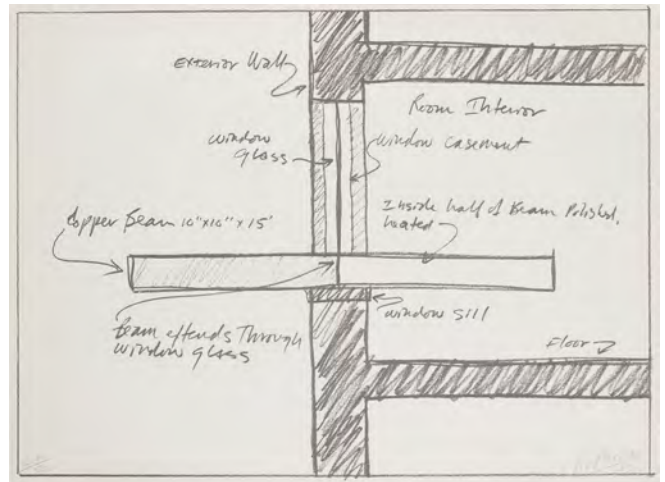 Exterior Wall
Room Interior
Window
Glass
Window Casement
Copper Beam 10"x10"x15'
Inside half of Beam Polished,
heated
Beam extends Through
window glass
window sill
Floor